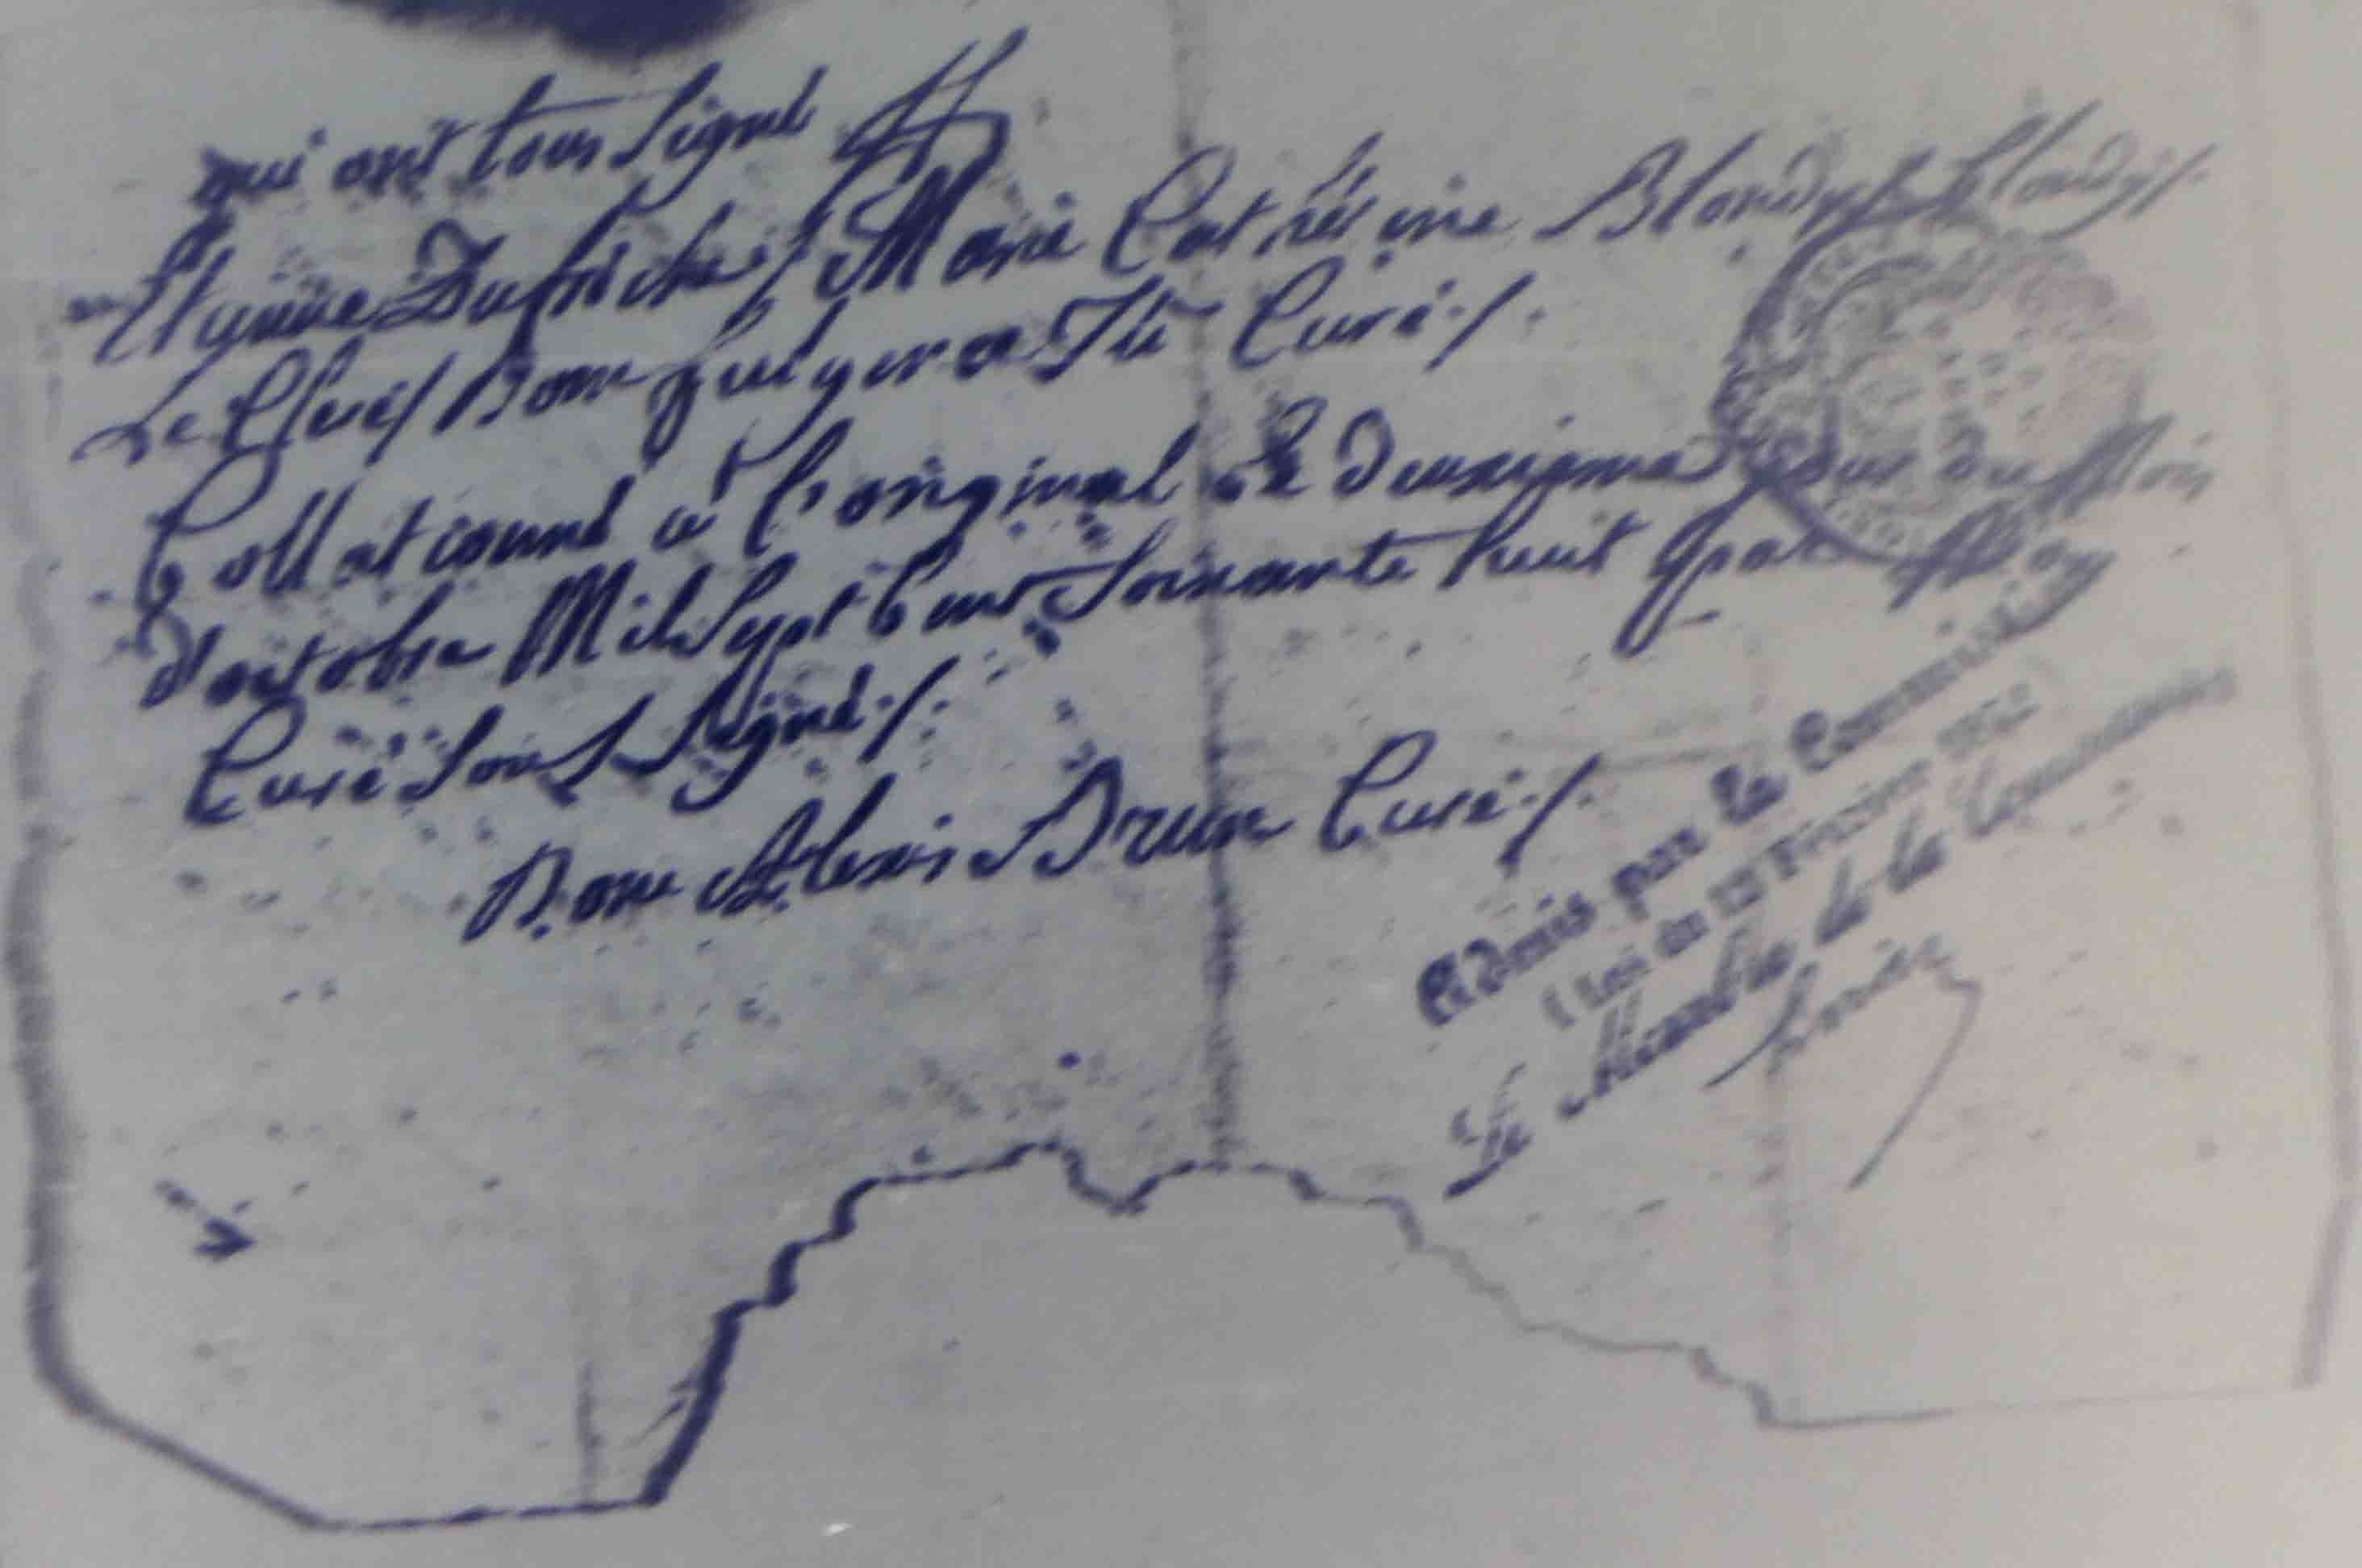 qui ont tous Signé
Etienne Dufriche / Marie Catherine Blondy / Blondy /.
Le Clerc / Dom fulgence Curé./.
Collationné à l'original Le deuxieme jour du Mois
d'octobre Mil Sept Cent Soixante huit par Moy
Curé Sous Signé./.
Dom Alexis Brun Curé./.
Admis par la Commission
(Loi du 12 Février 1872)
Le Membre de la Commission